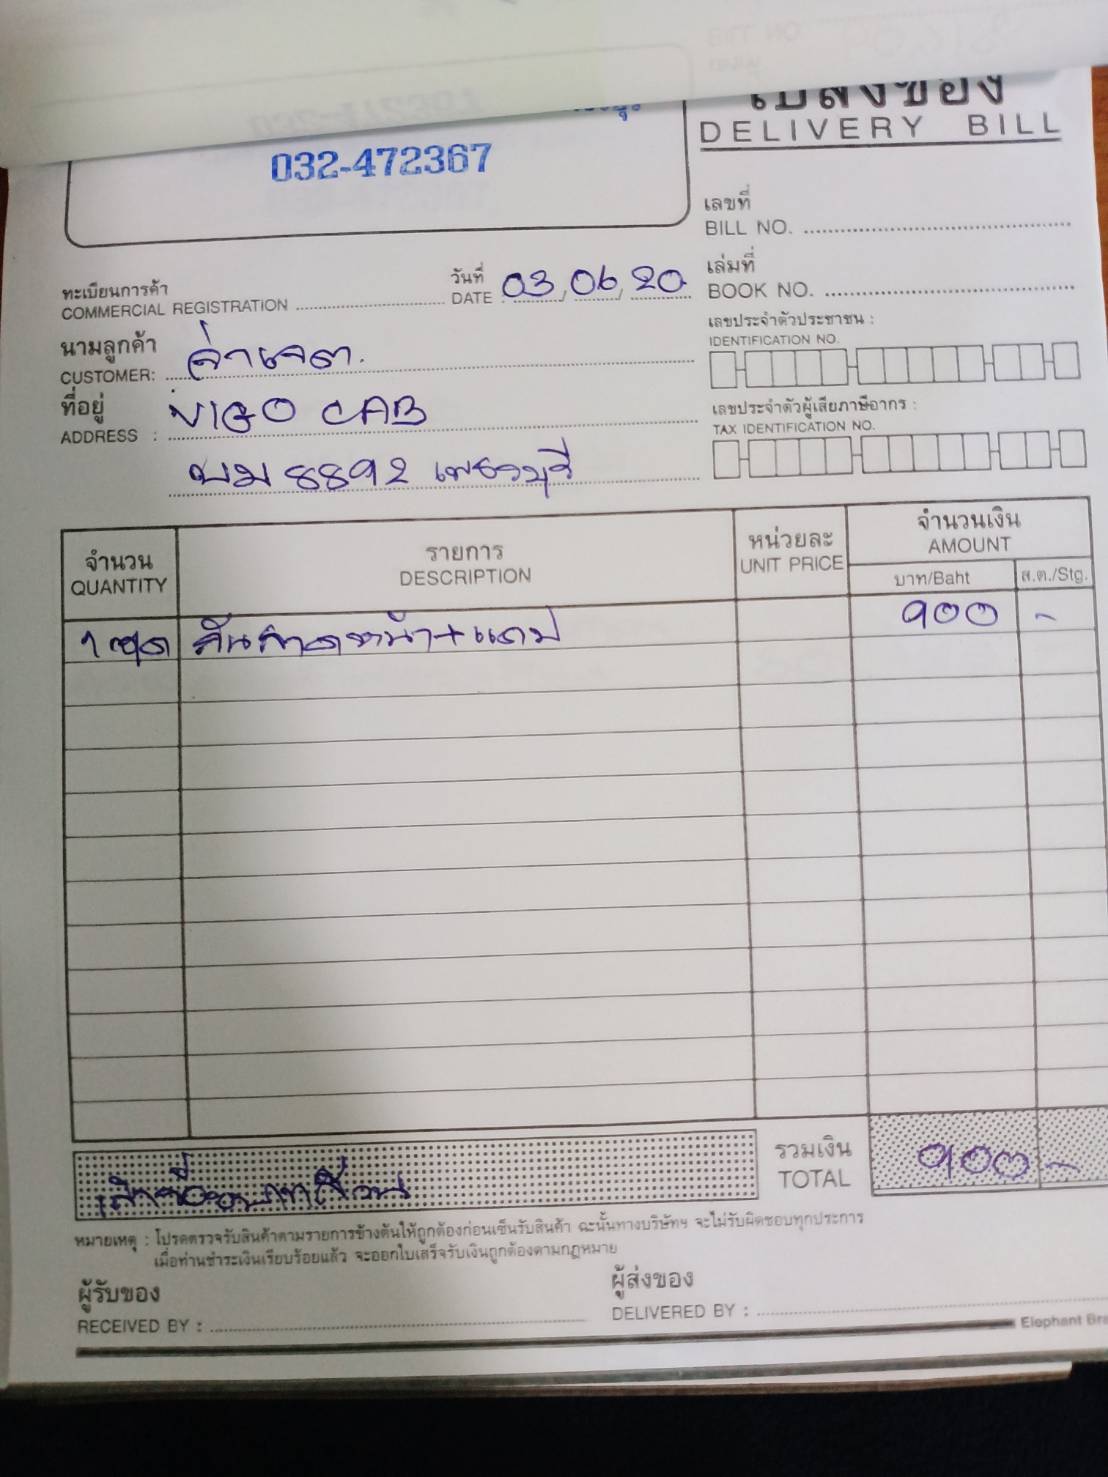 ใบส่งของ
DELIVERY BILL
032-472367
เลขที่
BILL NO.
ทะเบียนการค้า
COMMERCIAL REGISTRATION
วันที่
DATE 03, 06, 20
เล่มที่
BOOK NO.
นามลูกค้า
CUSTOMER: จ่าเจต.
เลขประจำตัวประชาชน :
IDENTIFICATION NO.
ที่อยู่
ADDRESS : VIGO CAB
บม 8892 เพชรบุรี
เลขประจำตัวผู้เสียภาษีอากร :
TAX IDENTIFICATION NO.
จำนวน รายการ หน่วยละ จำนวนเงิน
QUANTITY DESCRIPTION UNIT PRICE AMOUNT
บาท/Baht ส.ต./Stg.
1 ชุด คันลากหน้า+แถม 900 -
รวมเงิน
TOTAL 900 -
หมายเหตุ : โปรดตรวจรับสินค้าตามรายการข้างต้นให้ถูกต้องก่อนเซ็นรับสินค้า ฉะนั้นทางบริษัทฯ จะไม่รับผิดชอบทุกประการ
เมื่อท่านชำระเงินเรียบร้อยแล้ว จะออกใบเสร็จรับเงินถูกต้องตามกฎหมาย
ผู้รับของ
RECEIVED BY :
ผู้ส่งของ
DELIVERED BY :
Elephant Bra